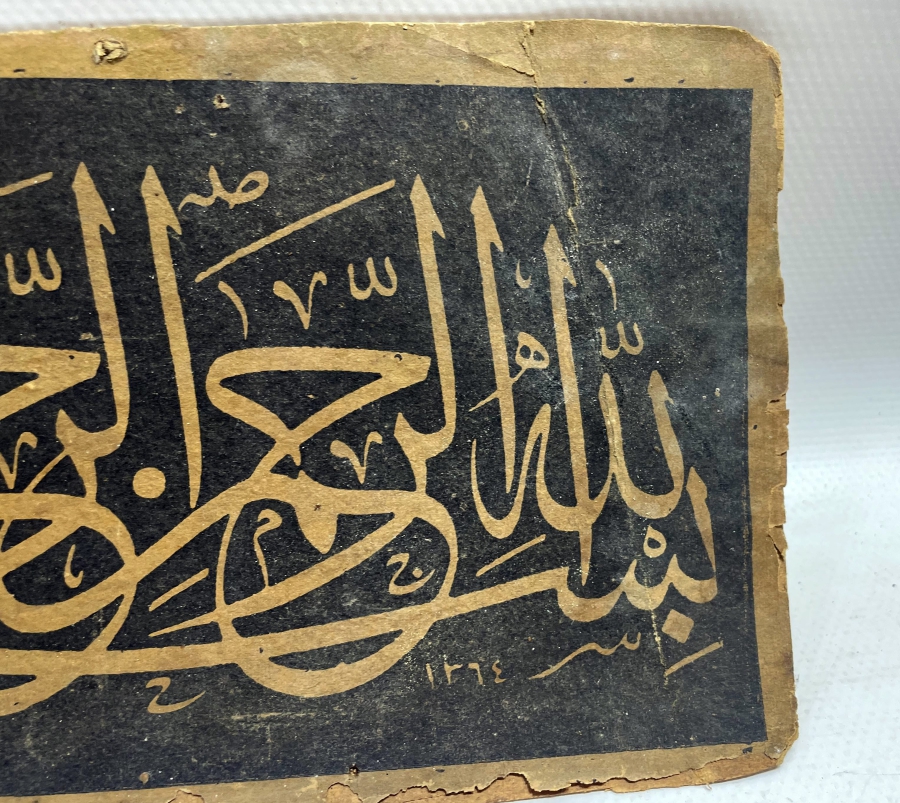 بِسْمِ اللّٰهِ الرَّحْمٰنِ الرَّحِ
١٣٦٤